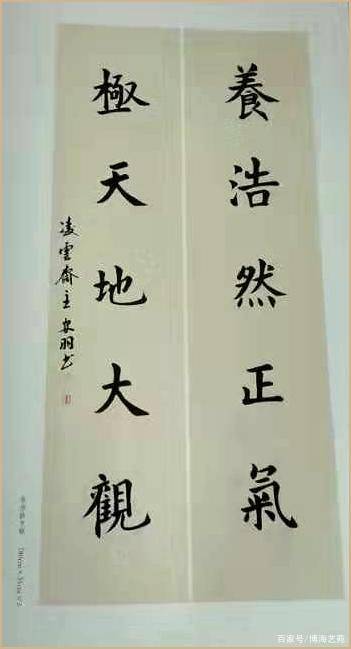 養浩然正氣
極天地大觀
凌雲齋主 安羽书
180cm×35cm×2
百家号/博海艺苑